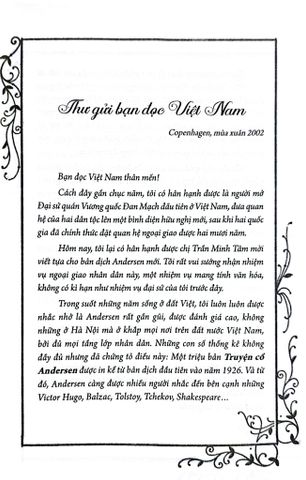 Thư gửi bạn đọc Việt Nam
Copenhagen, mùa xuân 2002
Bạn đọc Việt Nam thân mến!
Cách đây gần chục năm, tôi có hân hạnh được là người mở
Đại sứ quán Vương quốc Đan Mạch đầu tiên ở Việt Nam, đưa quan
hệ của hai dân tộc lên một bình diện hữu nghị mới, sau khi hai quốc
gia đã chính thức đặt quan hệ ngoại giao được hai mươi năm.
Hôm nay, tôi lại có hân hạnh được chị Trần Minh Tâm mời
viết tựa cho bản dịch Andersen mới. Tôi rất vui sướng nhận nhiệm
vụ ngoại giao nhân dân này, một nhiệm vụ mang tính văn hóa,
không có kì hạn như nhiệm vụ đại sứ của tôi trước đây.
Trong suốt những năm sống ở đất Việt, tôi luôn luôn được
nhắc nhở là Andersen rất gần gũi, được đánh giá cao, không
những ở Hà Nội mà ở khắp mọi nơi trên đất nước Việt Nam,
bởi đủ mọi tầng lớp nhân dân. Những con số thống kê không
đầy đủ nhưng đã chứng tỏ điều này: Một triệu bản Truyện cổ
Andersen được in kể từ bản dịch đầu tiên vào năm 1926. Và từ
đó, Andersen càng được nhiều người nhắc đến bên cạnh những
Victor Hugo, Balzac, Tolstoy, Tchekov, Shakespeare…